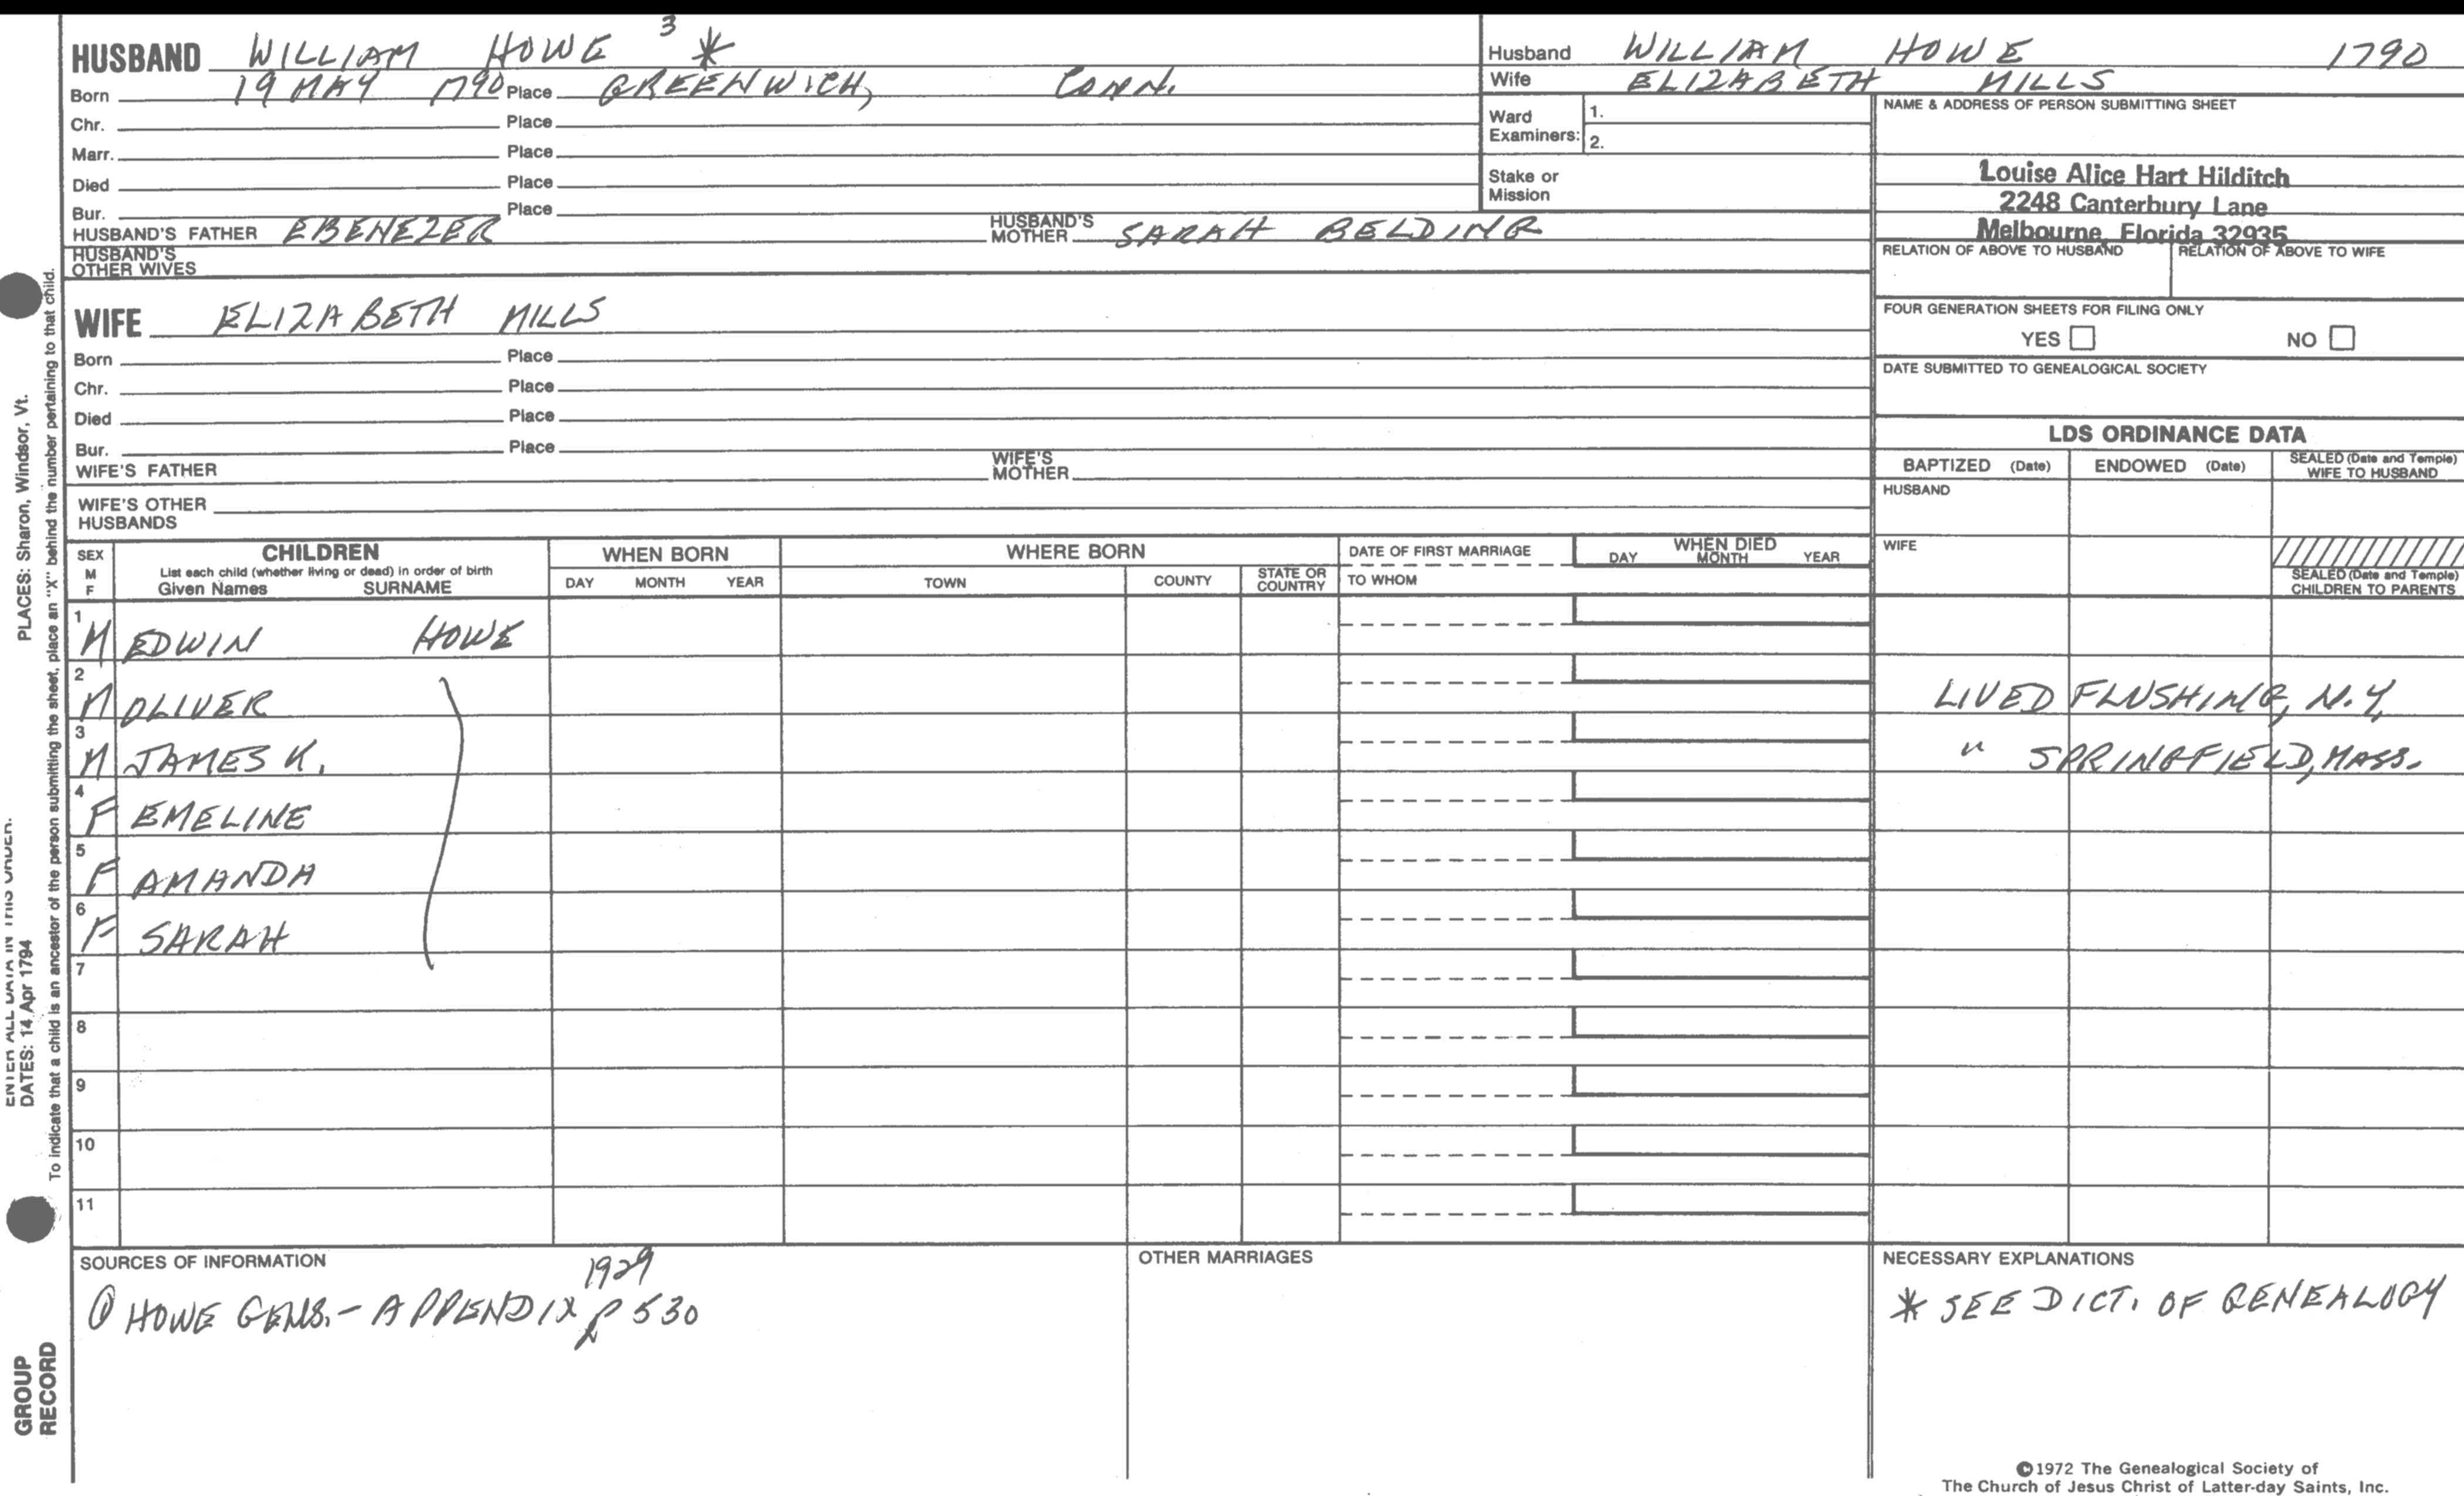 HUSBAND WILLIAM HOWE 3 *
Born 19 MAY 1790 Place GREENWICH, CONN.
Chr. Place
Marr. Place
Died Place
Bur. Place
HUSBAND'S FATHER EBENEZER HUSBAND'S MOTHER SARAH BELDING
HUSBAND'S OTHER WIVES
WIFE ELIZABETH MILLS
Born Place
Chr. Place
Died Place
Bur. Place
WIFE'S FATHER WIFE'S MOTHER
WIFE'S OTHER HUSBANDS
Husband WILLIAM HOWE 1790
Wife ELIZABETH MILLS
Ward Examiners: 1.
2.
Stake or Mission
NAME & ADDRESS OF PERSON SUBMITTING SHEET
Louise Alice Hart Hilditch
2248 Canterbury Lane
Melbourne, Florida 32935
RELATION OF ABOVE TO HUSBAND RELATION OF ABOVE TO WIFE
FOUR GENERATION SHEETS FOR FILING ONLY
YES NO
DATE SUBMITTED TO GENEALOGICAL SOCIETY
LDS ORDINANCE DATA
BAPTIZED (Date) ENDOWED (Date) SEALED (Date and Temple) WIFE TO HUSBAND
HUSBAND
WIFE
SEALED (Date and Temple) CHILDREN TO PARENTS
SEX M F
CHILDREN
List each child (whether living or dead) in order of birth
Given Names SURNAME
WHEN BORN
DAY MONTH YEAR
WHERE BORN
TOWN COUNTY STATE OR COUNTRY
DATE OF FIRST MARRIAGE
TO WHOM
WHEN DIED
DAY MONTH YEAR
1 M EDWIN HOWE
2 M OLIVER LIVED FLUSHING, N.Y.
3 M JAMES K. " SPRINGFIELD, MASS.
4 F EMELINE
5 F AMANDA
6 F SARAH
7
8
9
10
11
SOURCES OF INFORMATION
1929
① HOWE GENS. - APPENDIX p 530
OTHER MARRIAGES
NECESSARY EXPLANATIONS
* SEE DICT. OF GENEALOGY
©1972 The Genealogical Society of
The Church of Jesus Christ of Latter-day Saints, Inc.
PLACES: Sharon, Windsor, Vt.
ENTER ALL DATA IN THIS ORDER:
DATES: 14 Apr 1794
To indicate that a child is an ancestor of the person submitting the sheet, place an "X" behind the number pertaining to that child.
GROUP
RECORD